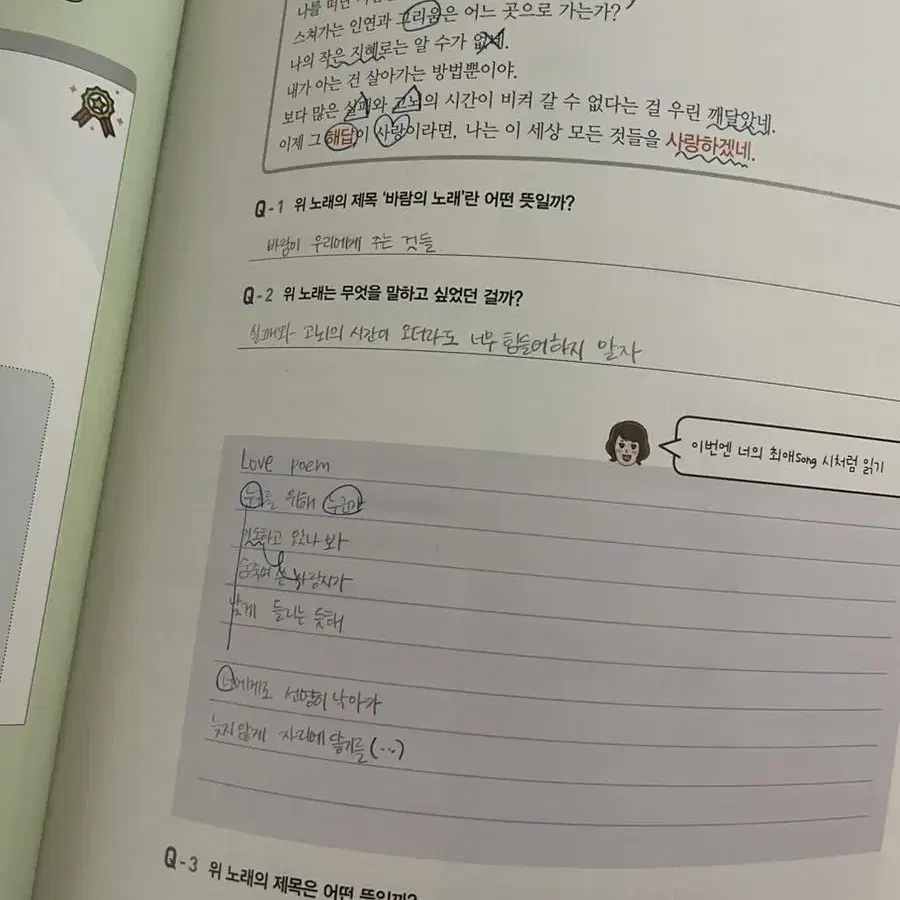 나를 떠난
스쳐가는 인연과 그리움은 어느 곳으로 가는가?
나의 작은 지혜로는 알 수가 없네.
내가 아는 건 살아가는 방법뿐이야.
보다 많은 실패와 고뇌의 시간이 비켜 갈 수 없다는 걸 우린 깨달았네.
이제 그 해답이 사랑이라면, 나는 이 세상 모든 것들을 사랑하겠네.
Q-1 위 노래의 제목 '바람의 노래'란 어떤 뜻일까?
바람이 우리에게 주는 것들
Q-2 위 노래는 무엇을 말하고 싶었던 걸까?
실패와 고뇌의 시간이 오더라도 너무 힘들어하지 말자
이번엔 너의 최애song 시처럼 읽기
Love poem
누구를 위해 누군가
기도하고 있나 봐
숨죽여 쓴 사랑시가
낮게 들리는 듯해
너에게로 선명히 날아가
늦지 않게 자리에 닿기를 (...)
Q-3 위 노래의 제목은 어떤 뜻일까?